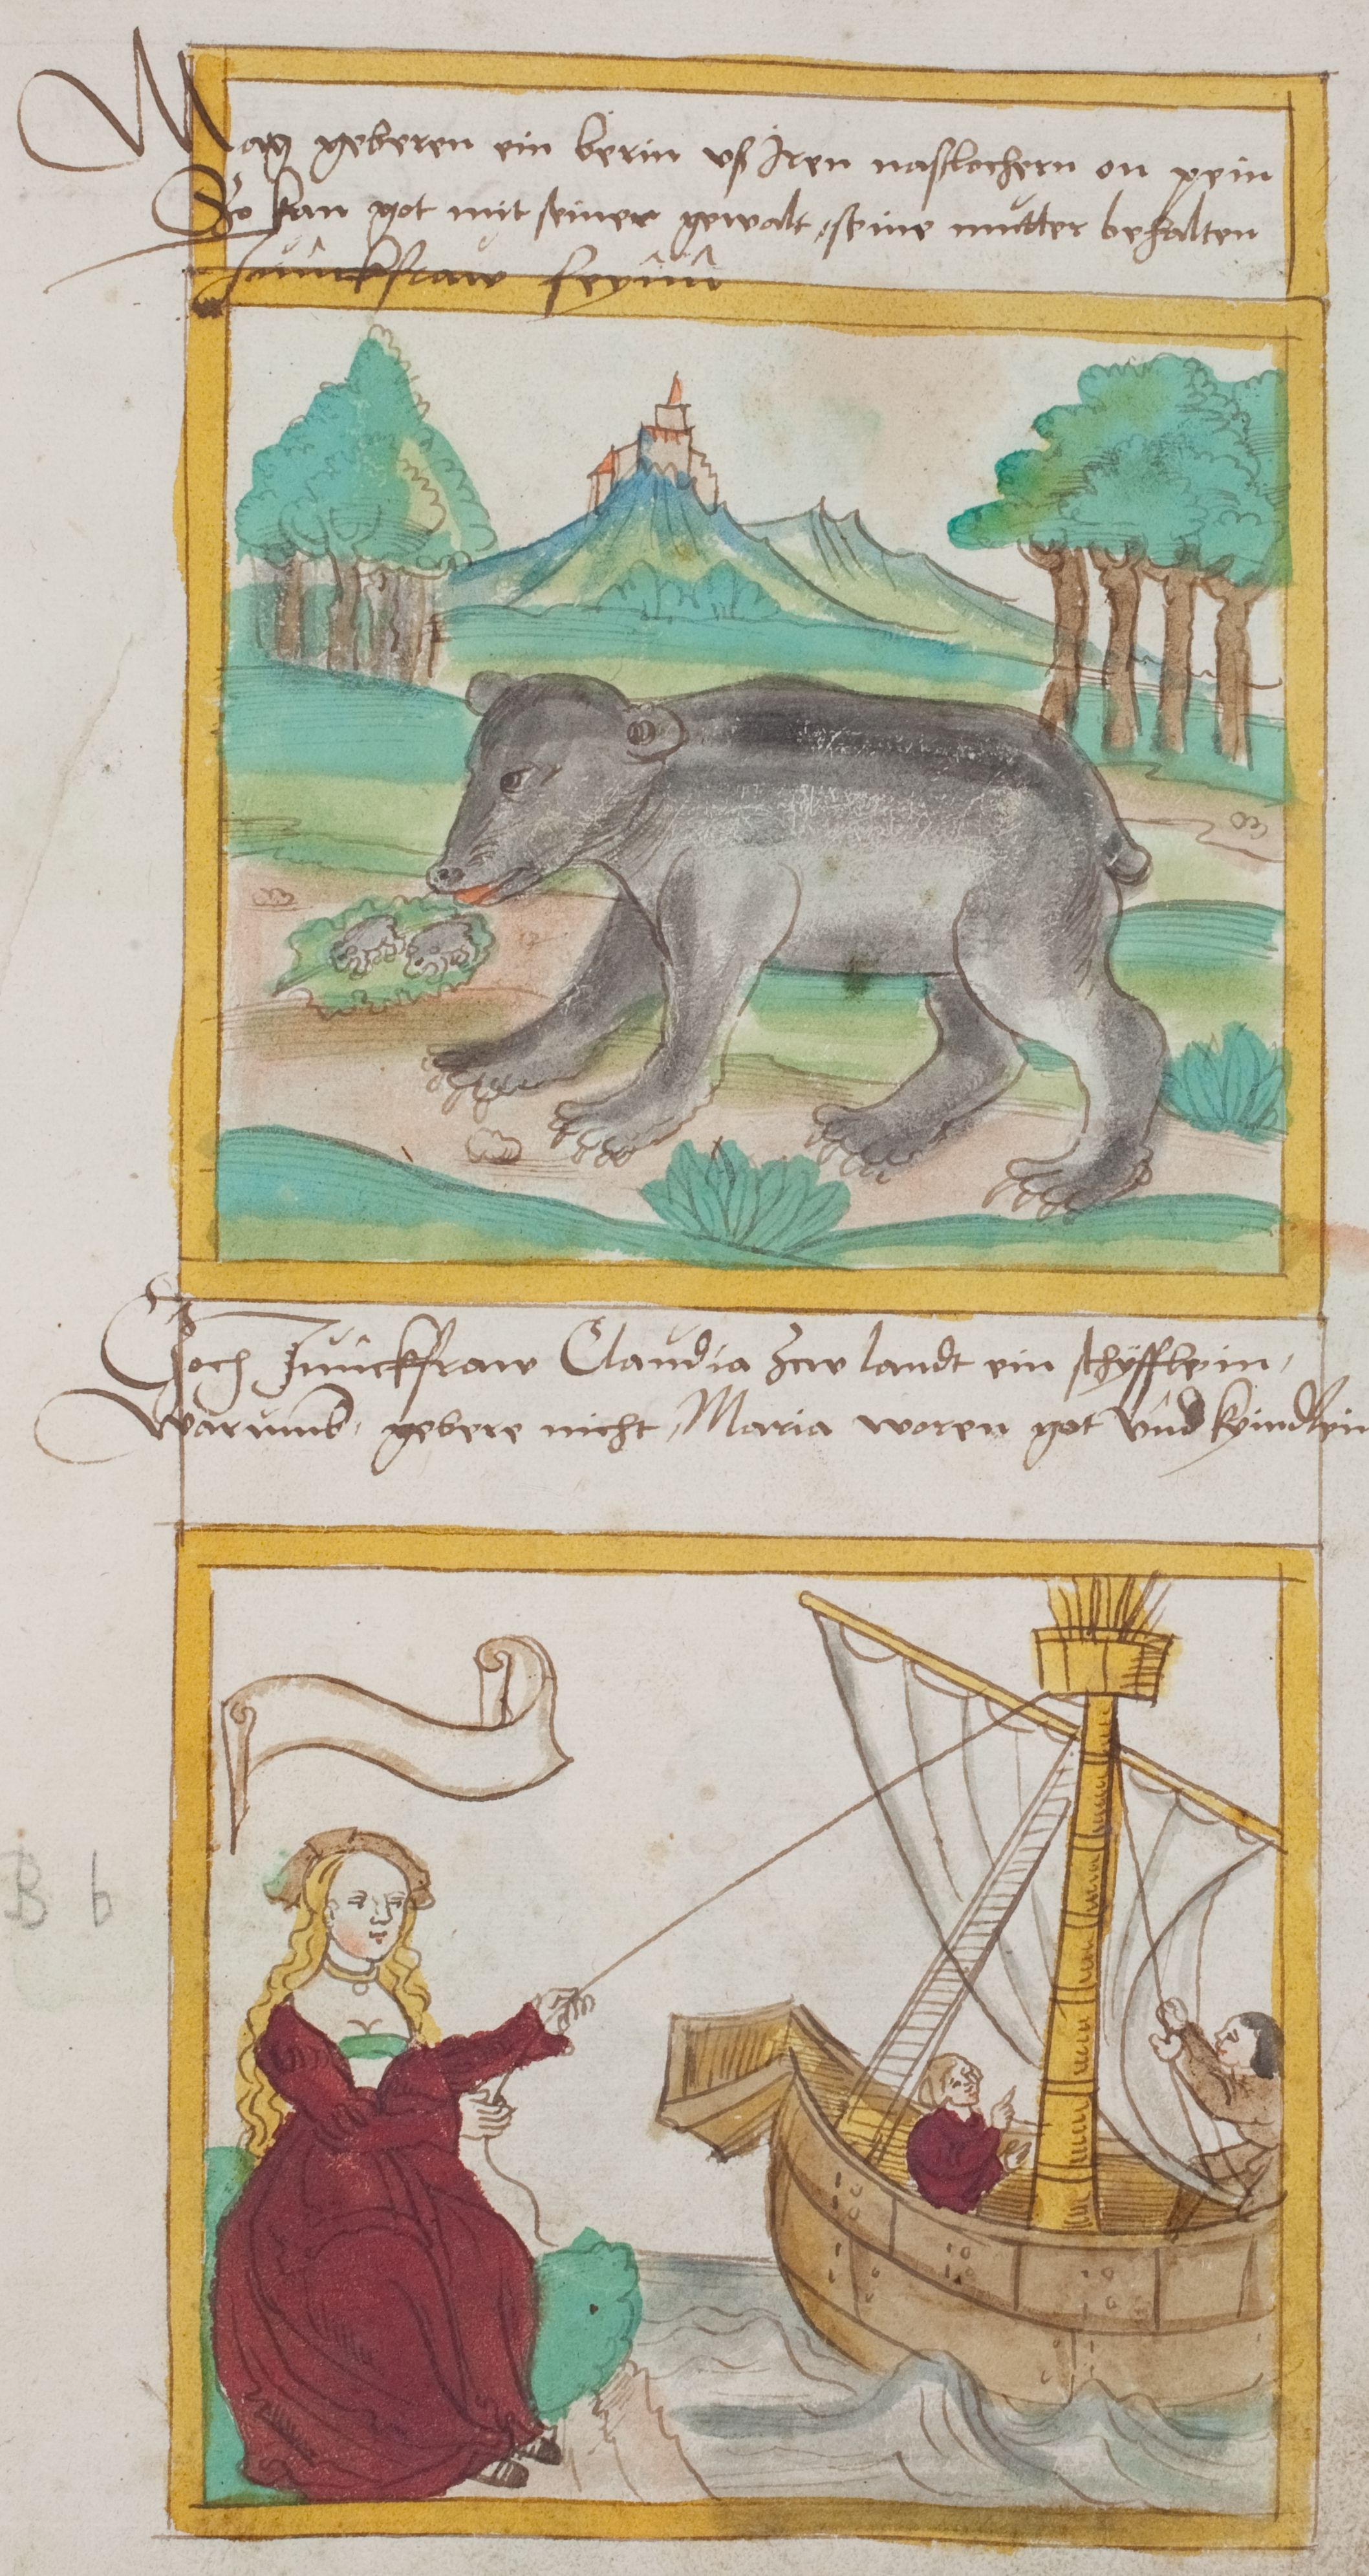 Mag geberen ein berin vß Jren naßlochern on pein
So kan got mit seiner gewalt, seine mutter behalten
Junckfraw seynn
Zoch Junckfraw Claudia zw landt ein schyfflein,
Warumb, gebere nicht, Maria woren got vnd kyindlein
B b